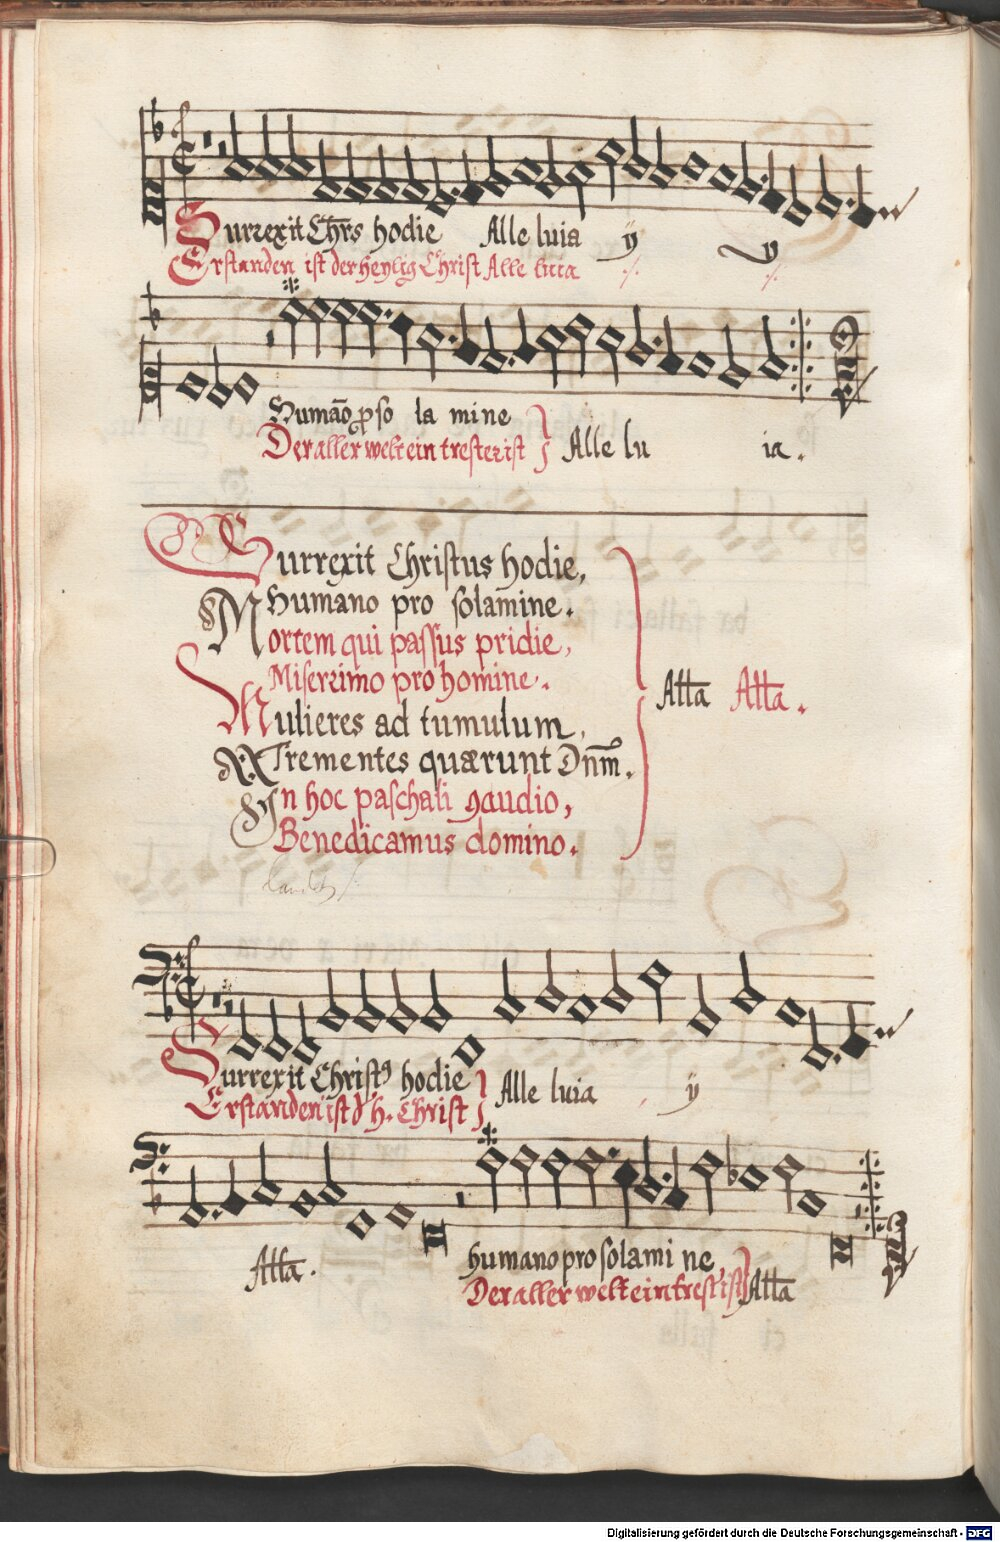 Surrexit Chrs hodie Alle luia ij ij
Erstanden ist der heylig Christ Alle luia
Humaō pso la mine
Der aller welt ein trester ist } Alle lu ia.
Surrexit Christus hodie,
Humano pro solamine.
Mortem qui passus pridie,
Miserrimo pro homine.
Alla Alla.
Mulieres ad tumulum,
Trementes quærunt Dnm̄.
In hoc paschali gaudio,
Benedicamus domino.
Surrexit Christ9 hodie } Alle luia ij
Erstanden ist d h. Christ
Alla. humano pro solami ne,
Der aller welt ein trest ist } Alla
Digitalisierung gefördert durch die Deutsche Forschungsgemeinschaft - DFG